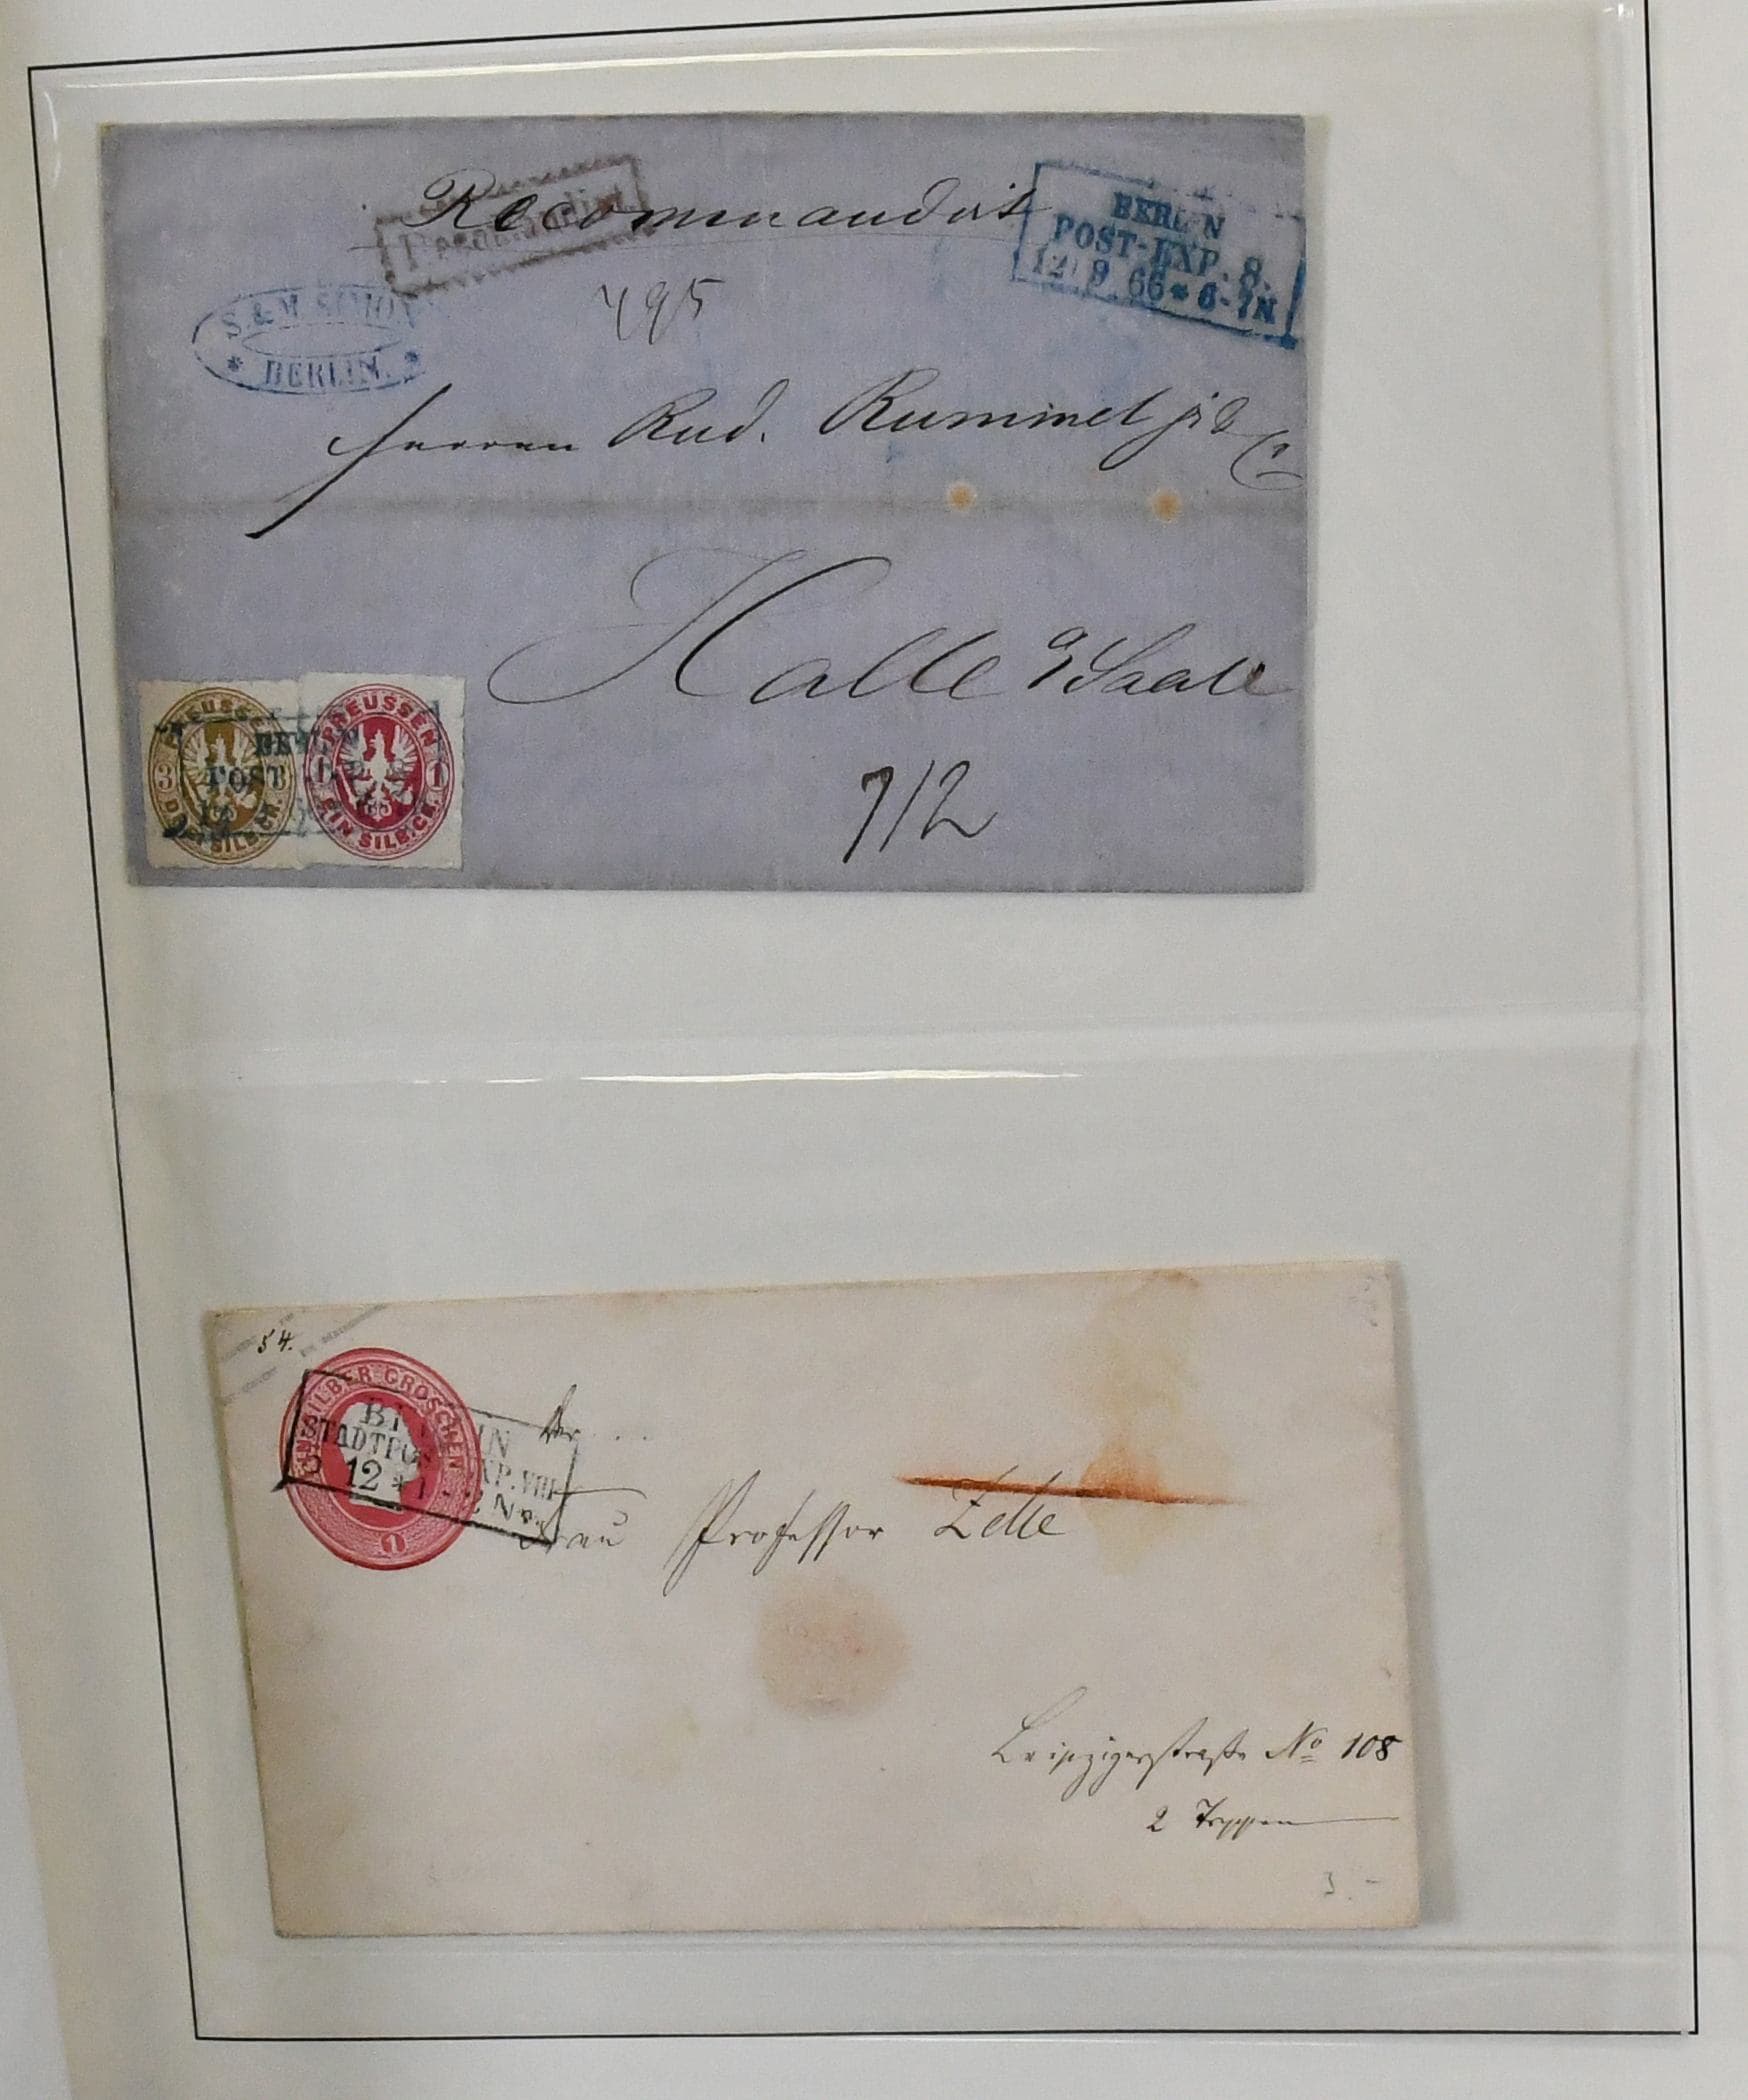 Recommandirt
Recommandirt
BERLIN
POST-EXP. 8.
12 9 66 * 6-7N
S. & M. SIMON
* BERLIN. *
495
Herren Rud. Rummel jr & Co
Halle a/Saale
7/2
PREUSSEN
3 3
DREI SILB.GR.
PREUSSEN
1 1
EIN SILB.GR.
BERLIN
POST
12
54.
EIN SILBER GROSCHEN
1
BERLIN
STADTPOST-EXP. VIII
12 * 1 - 2 N
Frau Professor Zelle
Leipzigerstraße No 108
2 Treppen
3.-